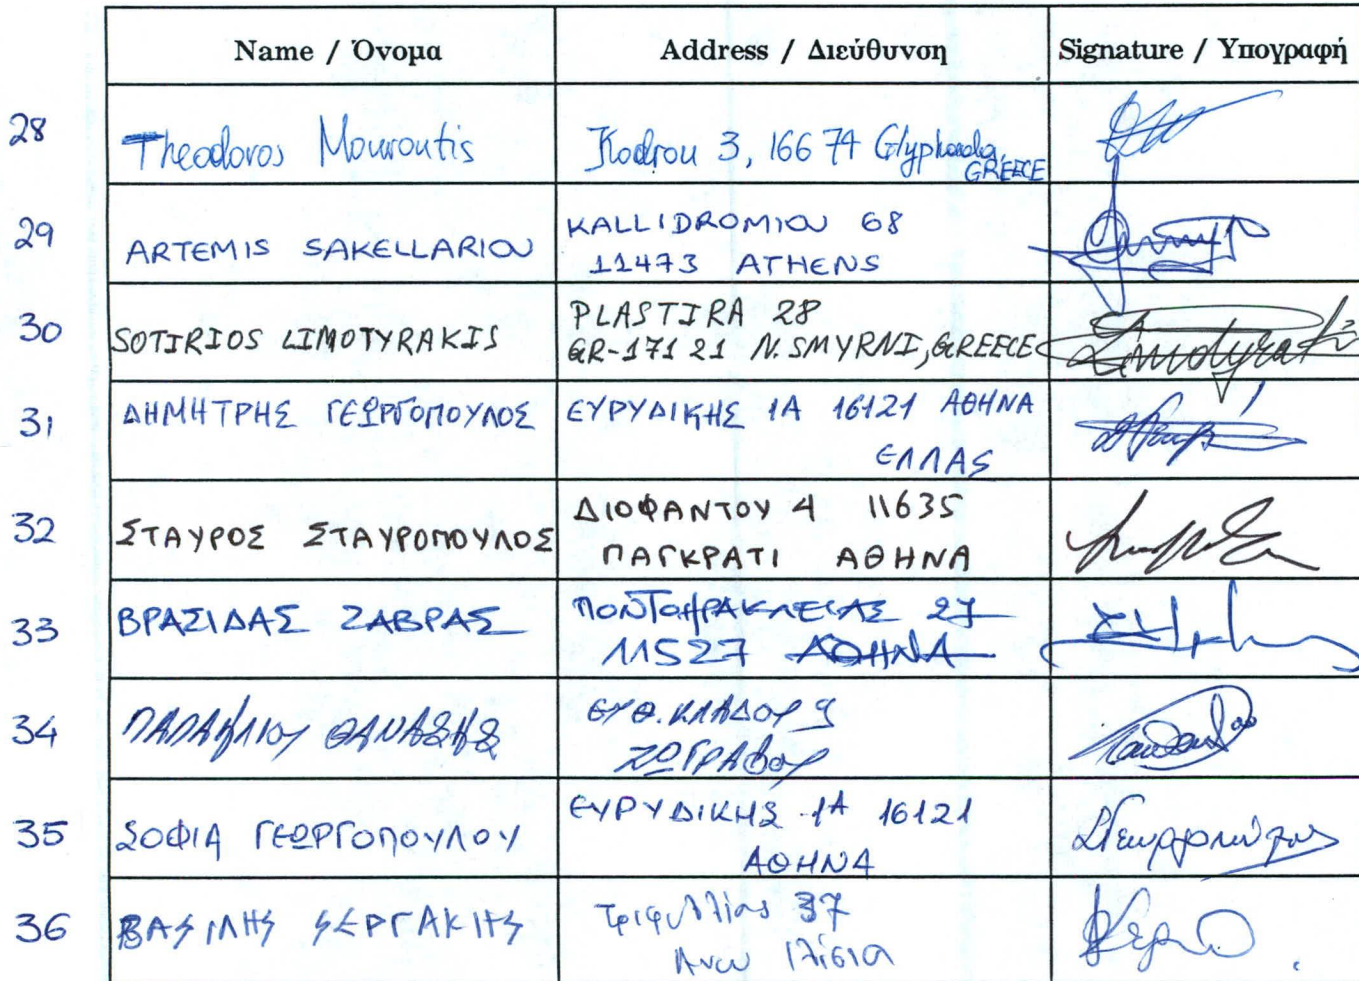 Name / Όνομα Address / Διεύθυνση Signature / Υπογραφή
28 Theodoros Mouroutis Kodrou 3, 166 74 Glyphada,
GREECE
29 ARTEMIS SAKELLARIOU KALLIDROMIOU 68
11473 ATHENS
30 SOTIRIOS LIMOTYRAKIS PLASTIRA 28
GR-171 21 N. SMYRNI, GREECE
31 ΔΗΜΗΤΡΗΣ ΓΕΩΡΓΟΠΟΥΛΟΣ ΕΥΡΥΔΙΚΗΣ 1Α 16121 ΑΘΗΝΑ
ΕΛΛΑΣ
32 ΣΤΑΥΡΟΣ ΣΤΑΥΡΟΠΟΥΛΟΣ ΔΙΟΦΑΝΤΟΥ 4 11635
ΠΑΓΚΡΑΤΙ ΑΘΗΝΑ
33 ΒΡΑΣΙΔΑΣ ΖΑΒΡΑΣ ΠΟΝΤΟΗΡΑΚΛΕΙΑΣ 27
11527 ΑΘΗΝΑ
34 ΠΑΠΑΗΛΙΟΥ ΘΑΝΑΣΗΣ ΕΥΘ. ΚΛΑΔΟΥ 9
ΖΩΓΡΑΦΟΥ
35 ΣΟΦΙΑ ΓΕΩΡΓΟΠΟΥΛΟΥ ΕΥΡΥΔΙΚΗΣ 1Α 16121
ΑΘΗΝΑ
36 ΒΑΣΙΛΗΣ ΣΕΡΓΑΚΗΣ Τριφυλλίας 37
Άνω Ιλίσια